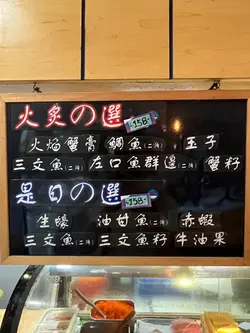 火炙の選 $158
火焰蟹膏 鯛魚(二件) 玉子
三文魚(二件) 左口魚群邊(二件) 蟹籽
是日の選 $158
生蠔 油甘魚(二件) 赤蝦
三文魚(二件) 三文魚籽 牛油果